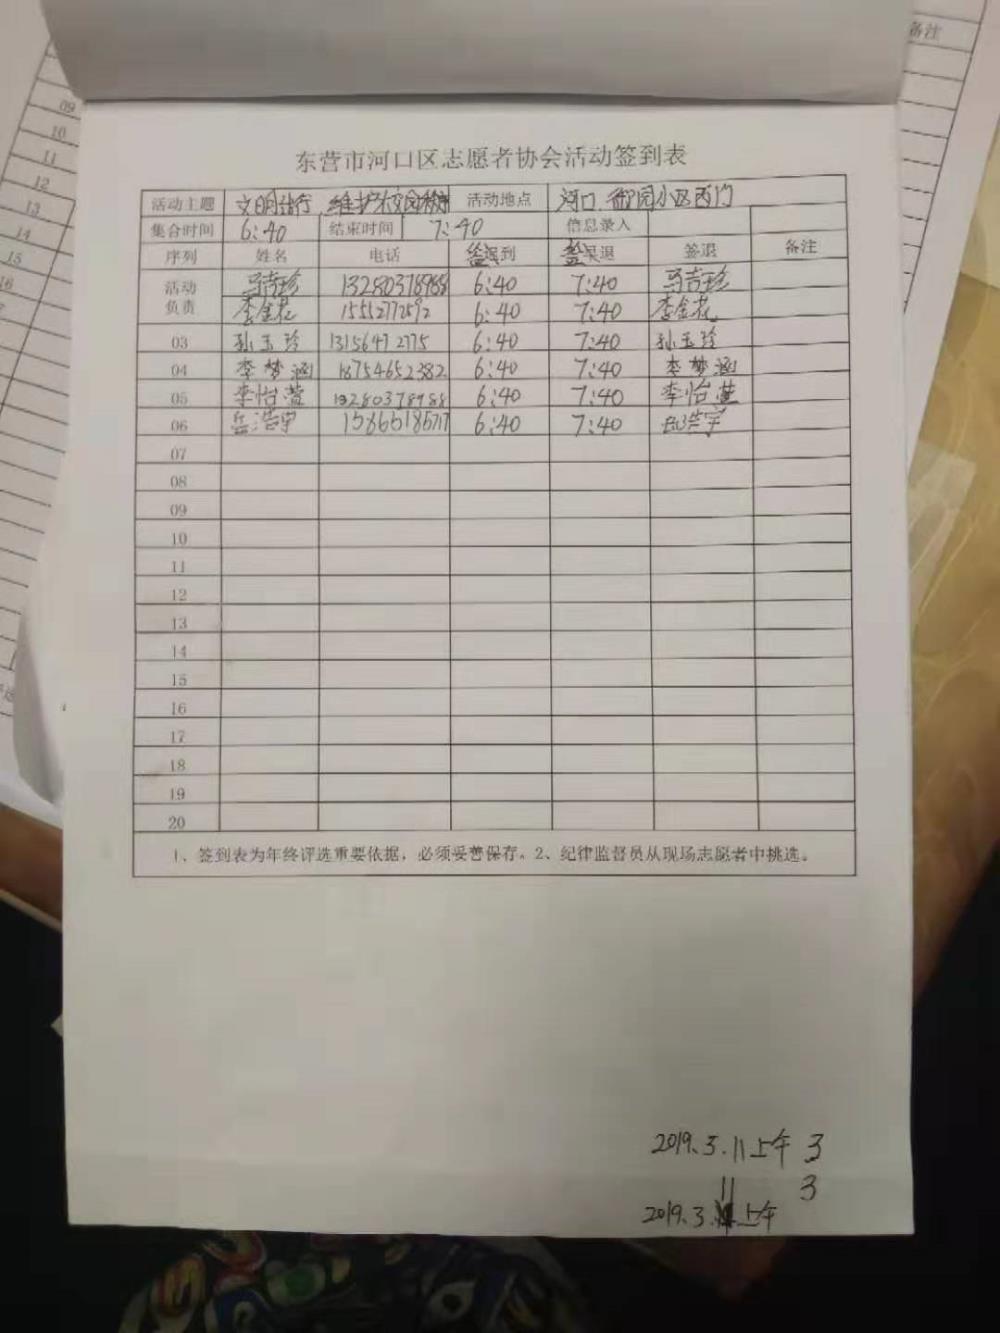 备注
09
10
11
12
13
14
15
16
东营市河口区志愿者协会活动签到表
活动主题 文明出行,维护校园秩序 活动地点 河口 御园小区西门
集合时间 6:40 结束时间 7:40 信息录入
序列 姓名 电话 签到 签退 签退 备注
活动负责 马吉珍 13280378988 6:40 7:40 马吉珍
李金花 15551277592 6:40 7:40 李金花
03 孙玉珍 13156472775 6:40 7:40 孙玉珍
04 李梦涵 18754652382 6:40 7:40 李梦涵
05 李怡萱 13280378988 6:40 7:40 李怡萱
06 岳浩宇 15866185717 6:40 7:40 岳浩宇
07
08
09
10
11
12
13
14
15
16
17
18
19
20
1、签到表为年终评选重要依据,必须妥善保存。2、纪律监督员从现场志愿者中挑选。
2019.3.11上午 3
11 3
2019.3. 上午